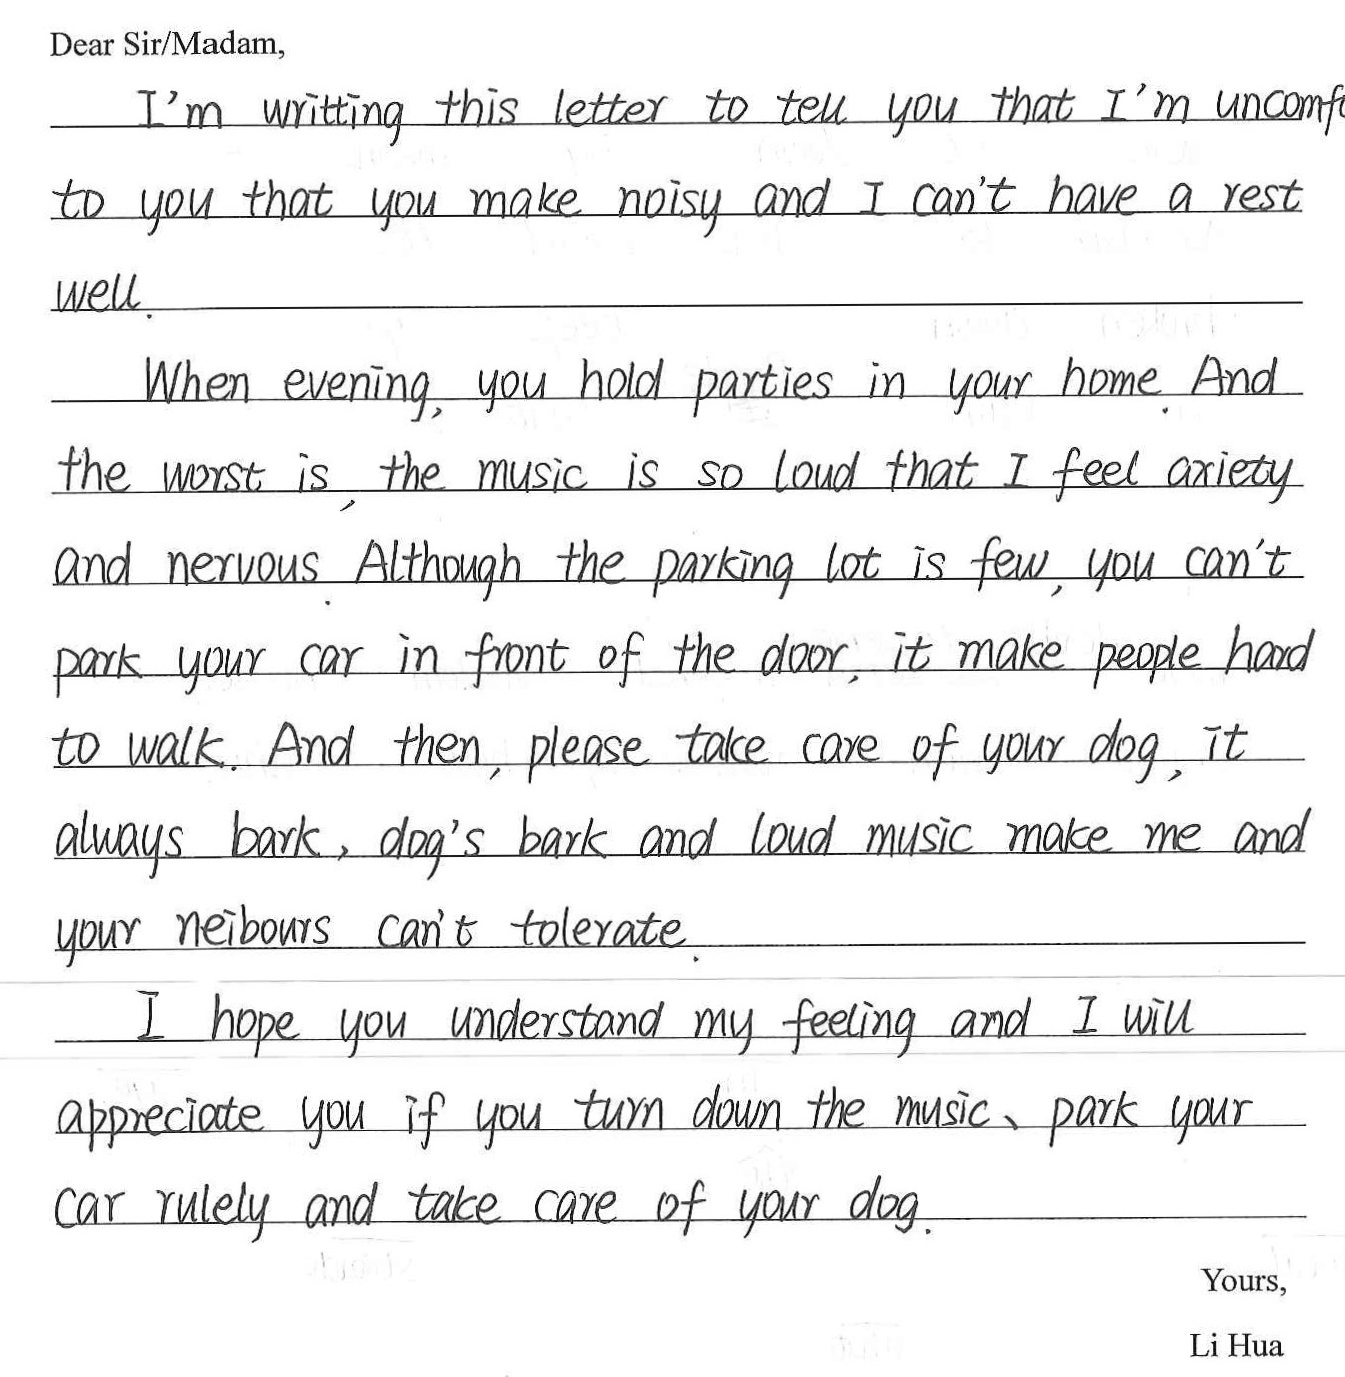 Dear Sir/Madam,
I'm writting this letter to tell you that I'm
to you that you make noisy and I can't have a rest
well.
When evening, you hold parties in your home. And
the worst is, the music is so loud that I feel axiety
and nervous. Although the parking lot is few, you can't
park your car in front of the door, it make people hard
to walk. And then, please take care of your dog, it
always bark, dog's bark and loud music make me and
your neibours can't tolerate.
I hope you understand my feeling and I will
appreciate you if you turn down the music、park your
car rulely and take care of your dog.
Yours,
Li Hua